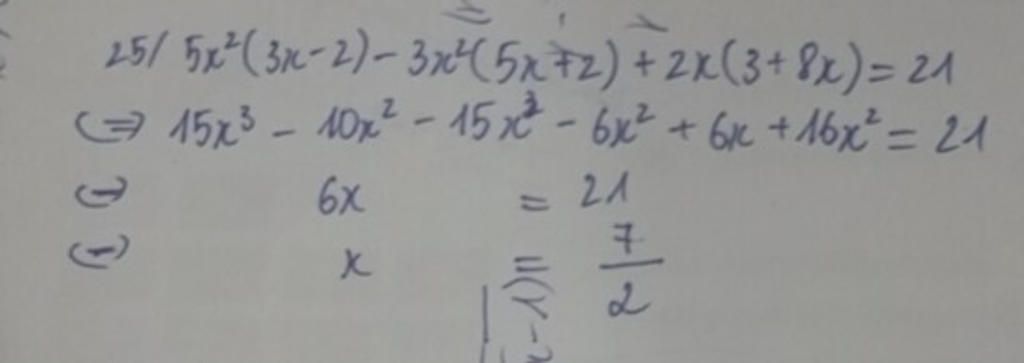 25/ 5x²(3x-2) - 3x²(5x+2) + 2x(3+8x) = 21
(=) 15x³ - 10x² - 15x³ - 6x² + 6x + 16x² = 21
(=) 6x = 21
(=) x = 7/2